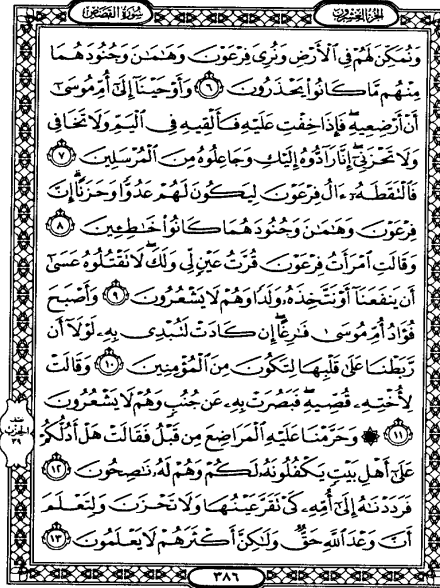 سُورَةُ القَصَصِ الجُزْءُ العِشْرُونَ
وَنُمَكِّنَ لَهُمْ فِي ٱلْأَرْضِ وَنُرِيَ فِرْعَوْنَ وَهَٰمَٰنَ وَجُنُودَهُمَا
مِنْهُم مَّا كَانُوا۟ يَحْذَرُونَ ٦ وَأَوْحَيْنَآ إِلَىٰٓ أُمِّ مُوسَىٰٓ
أَنْ أَرْضِعِيهِ ۖ فَإِذَا خِفْتِ عَلَيْهِ فَأَلْقِيهِ فِي ٱلْيَمِّ وَلَا تَخَافِي
وَلَا تَحْزَنِيٓ ۖ إِنَّا رَآدُّوهُ إِلَيْكِ وَجَاعِلُوهُ مِنَ ٱلْمُرْسَلِينَ ٧
فَٱلْتَقَطَهُۥٓ ءَالُ فِرْعَوْنَ لِيَكُونَ لَهُمْ عَدُوًّا وَحَزَنًا ۗ إِنَّ
فِرْعَوْنَ وَهَٰمَٰنَ وَجُنُودَهُمَا كَانُوا۟ خَٰطِـِٔينَ ٨
وَقَالَتِ ٱمْرَأَتُ فِرْعَوْنَ قُرَّتُ عَيْنٍ لِّي وَلَكَ ۖ لَا تَقْتُلُوهُ عَسَىٰٓ
أَن يَنفَعَنَآ أَوْ نَتَّخِذَهُۥ وَلَدًا وَهُمْ لَا يَشْعُرُونَ ٩ وَأَصْبَحَ
فُؤَادُ أُمِّ مُوسَىٰ فَٰرِغًا ۖ إِن كَادَتْ لَتُبْدِي بِهِۦ لَوْلَآ أَن
رَّبَطْنَا عَلَىٰ قَلْبِهَا لِتَكُونَ مِنَ ٱلْمُؤْمِنِينَ ١٠ وَقَالَتْ
لِأُخْتِهِۦ قُصِّيهِ ۖ فَبَصُرَتْ بِهِۦ عَن جُنُبٍ وَهُمْ لَا يَشْعُرُونَ
١١ ۞ وَحَرَّمْنَا عَلَيْهِ ٱلْمَرَاضِعَ مِن قَبْلُ فَقَالَتْ هَلْ أَدُلُّكُمْ
عَلَىٰٓ أَهْلِ بَيْتٍ يَكْفُلُونَهُۥ لَكُمْ وَهُمْ لَهُۥ نَٰصِحُونَ ١٢
فَرَدَدْنَٰهُ إِلَىٰٓ أُمِّهِۦ كَيْ تَقَرَّ عَيْنُهَا وَلَا تَحْزَنَ وَلِتَعْلَمَ
أَنَّ وَعْدَ ٱللَّهِ حَقٌّ وَلَٰكِنَّ أَكْثَرَهُمْ لَا يَعْلَمُونَ ١٣
نصف
الحزب
٣٩
٣٨٦